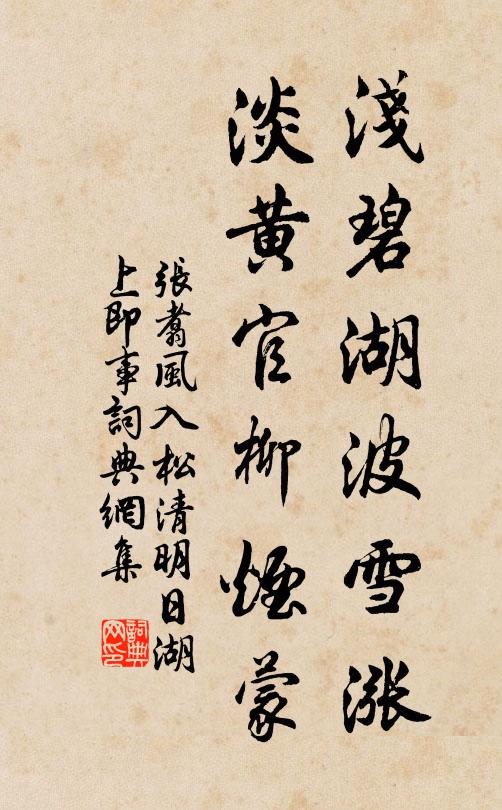 淺碧湖波雪漲
淡黃官柳煙蒙
張翥風入松清明日湖
上即事詞典網集
詞典網印